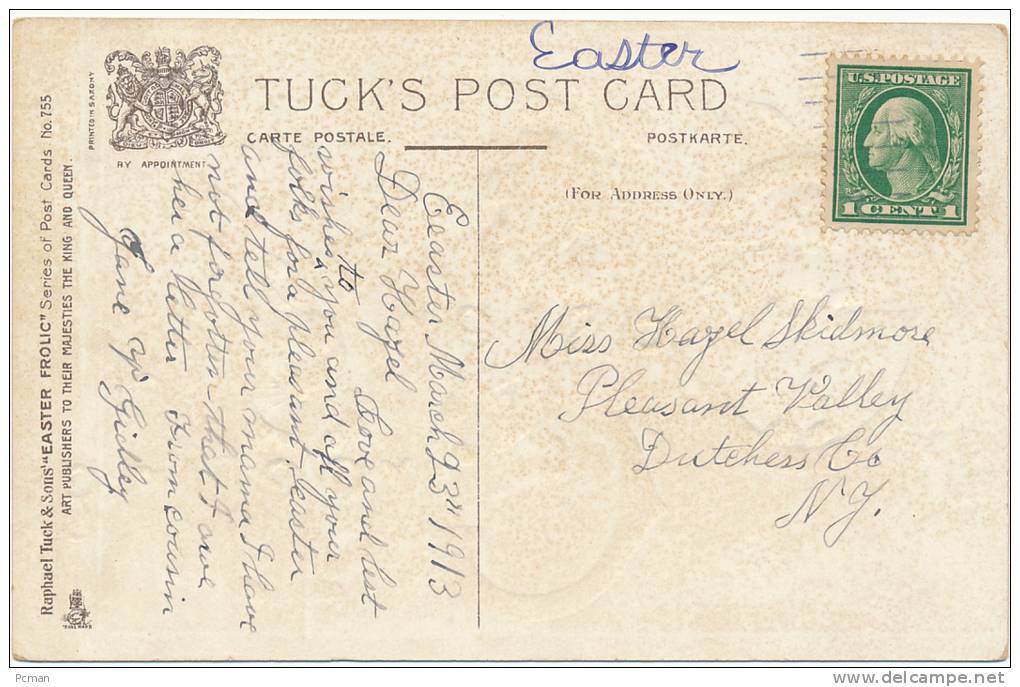 Easter
TUCK'S POST CARD
CARTE POSTALE.
POSTKARTE.
(FOR ADDRESS ONLY.)
BY APPOINTMENT
PRINTED IN SAXONY
Raphael Tuck & Sons' "EASTER FROLIC" Series of Post Cards No. 755
ART PUBLISHERS TO THEIR MAJESTIES THE KING AND QUEEN.
U.S. POSTAGE
1 CENT 1
Easter March 23" 1913
Dear Hazel
Love and best
wishes to you and all your
folks for a pleasant easter
and tell your mama I have
not forgotten that I owe
her a letter From cousin
Jane
Miss Hazel Skidmore
Pleasant Valley
Dutchess Co
N.Y.
Pcman
www.delcampe.net